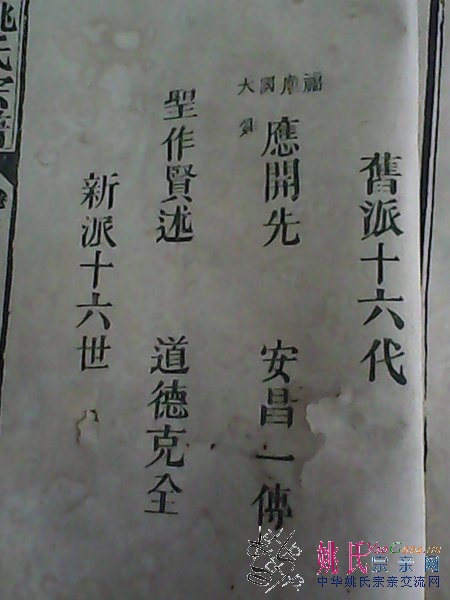 舊派十六代
福
國
大
應開先 安昌一傳
聖作賢述 道德克全
新派十六世
姚氏宗譜
姚氏宗亲网
中华姚氏宗亲交流网